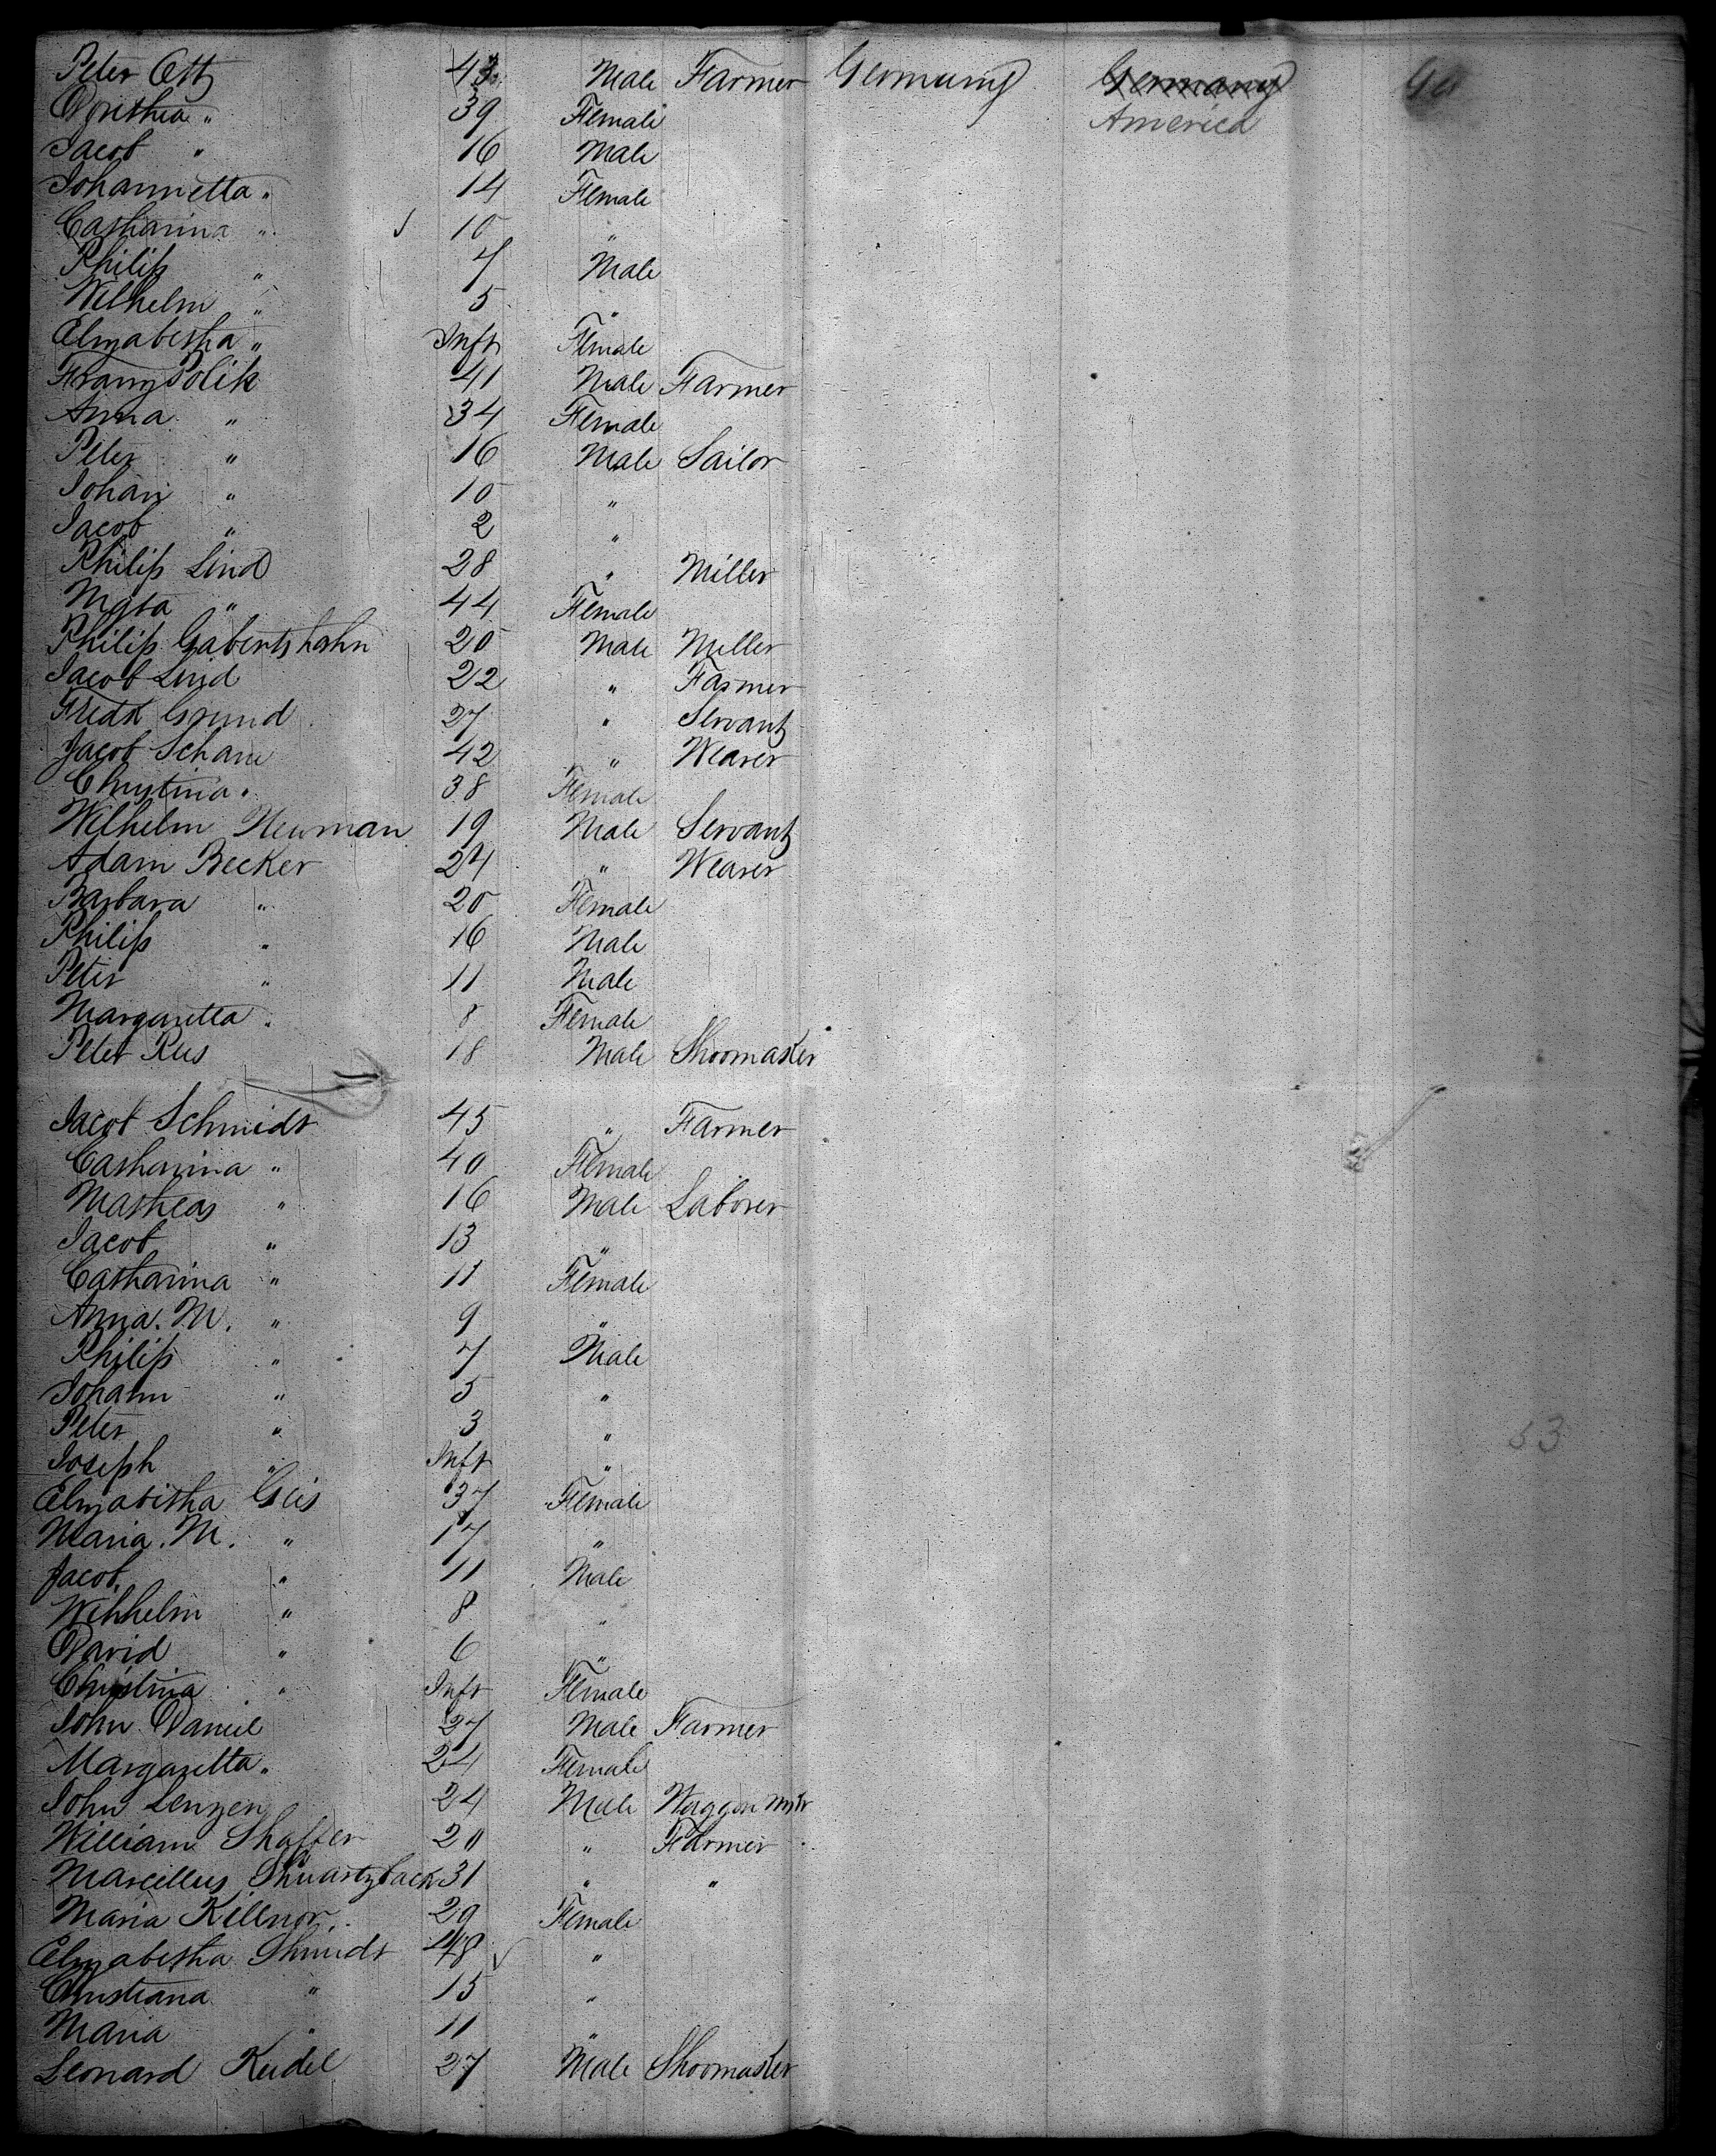 Peter Ott 43 Male Farmer Germany Germany
Dorithea " 39 Female America
Jacob " 16 Male
Johannetta " 14 Female
Catharina " 10 "
Philip " 7 Male
Wilhelm " 5 "
Elizabetha " Inft Female
Franz Polik 41 Male Farmer
Anna " 34 Female
Peter " 16 Male Sailor
Johan " 10 "
Jacob " 2 "
Philip Lind 28 " Miller
" 44 Female
Philip 20 Male Miller
Jacob Lind 22 " Farmer
Fredk Grund 27 " Servant
Jacob Scham 42 " Weaver
Christina " 38 Female
Wilhelm Newman 19 Male Servant
Adam Becker 24 " Weaver
Barbara " 20 Female
Philip " 16 Male
Peter " 11 Male
Margaretta " 8 Female
Peter Rus 18 Male Shoomaker
Jacob Schmidt 45 " Farmer
Catharina " 40 Female
Matheas " 16 Male Laborer
Jacob " 13 "
Catharina " 11 Female
Anna. M. " 9 "
Philip " 7 Male
Johann " 5 "
Peter " 3 "
53
Joseph " Inft "
Elizabetha Geis 37 Female
Maria. M. " 17 "
Jacob " 11 Male
Wilhelm " 8 "
David " 6 "
Christina " Inft Female
John Daniel 27 Male Farmer
Margaretta " 24 Female
John Lenzen 24 Male Waggon Mkr
William Shaffer 20 " Farmer
Marcellus Shwartzback 31 " "
Maria Killnor. 29 Female
Elizabetha Shmidt 48 "
Christiana " 15 "
Maria " 11 "
Leonard Keidel 27 Male Shoomaker